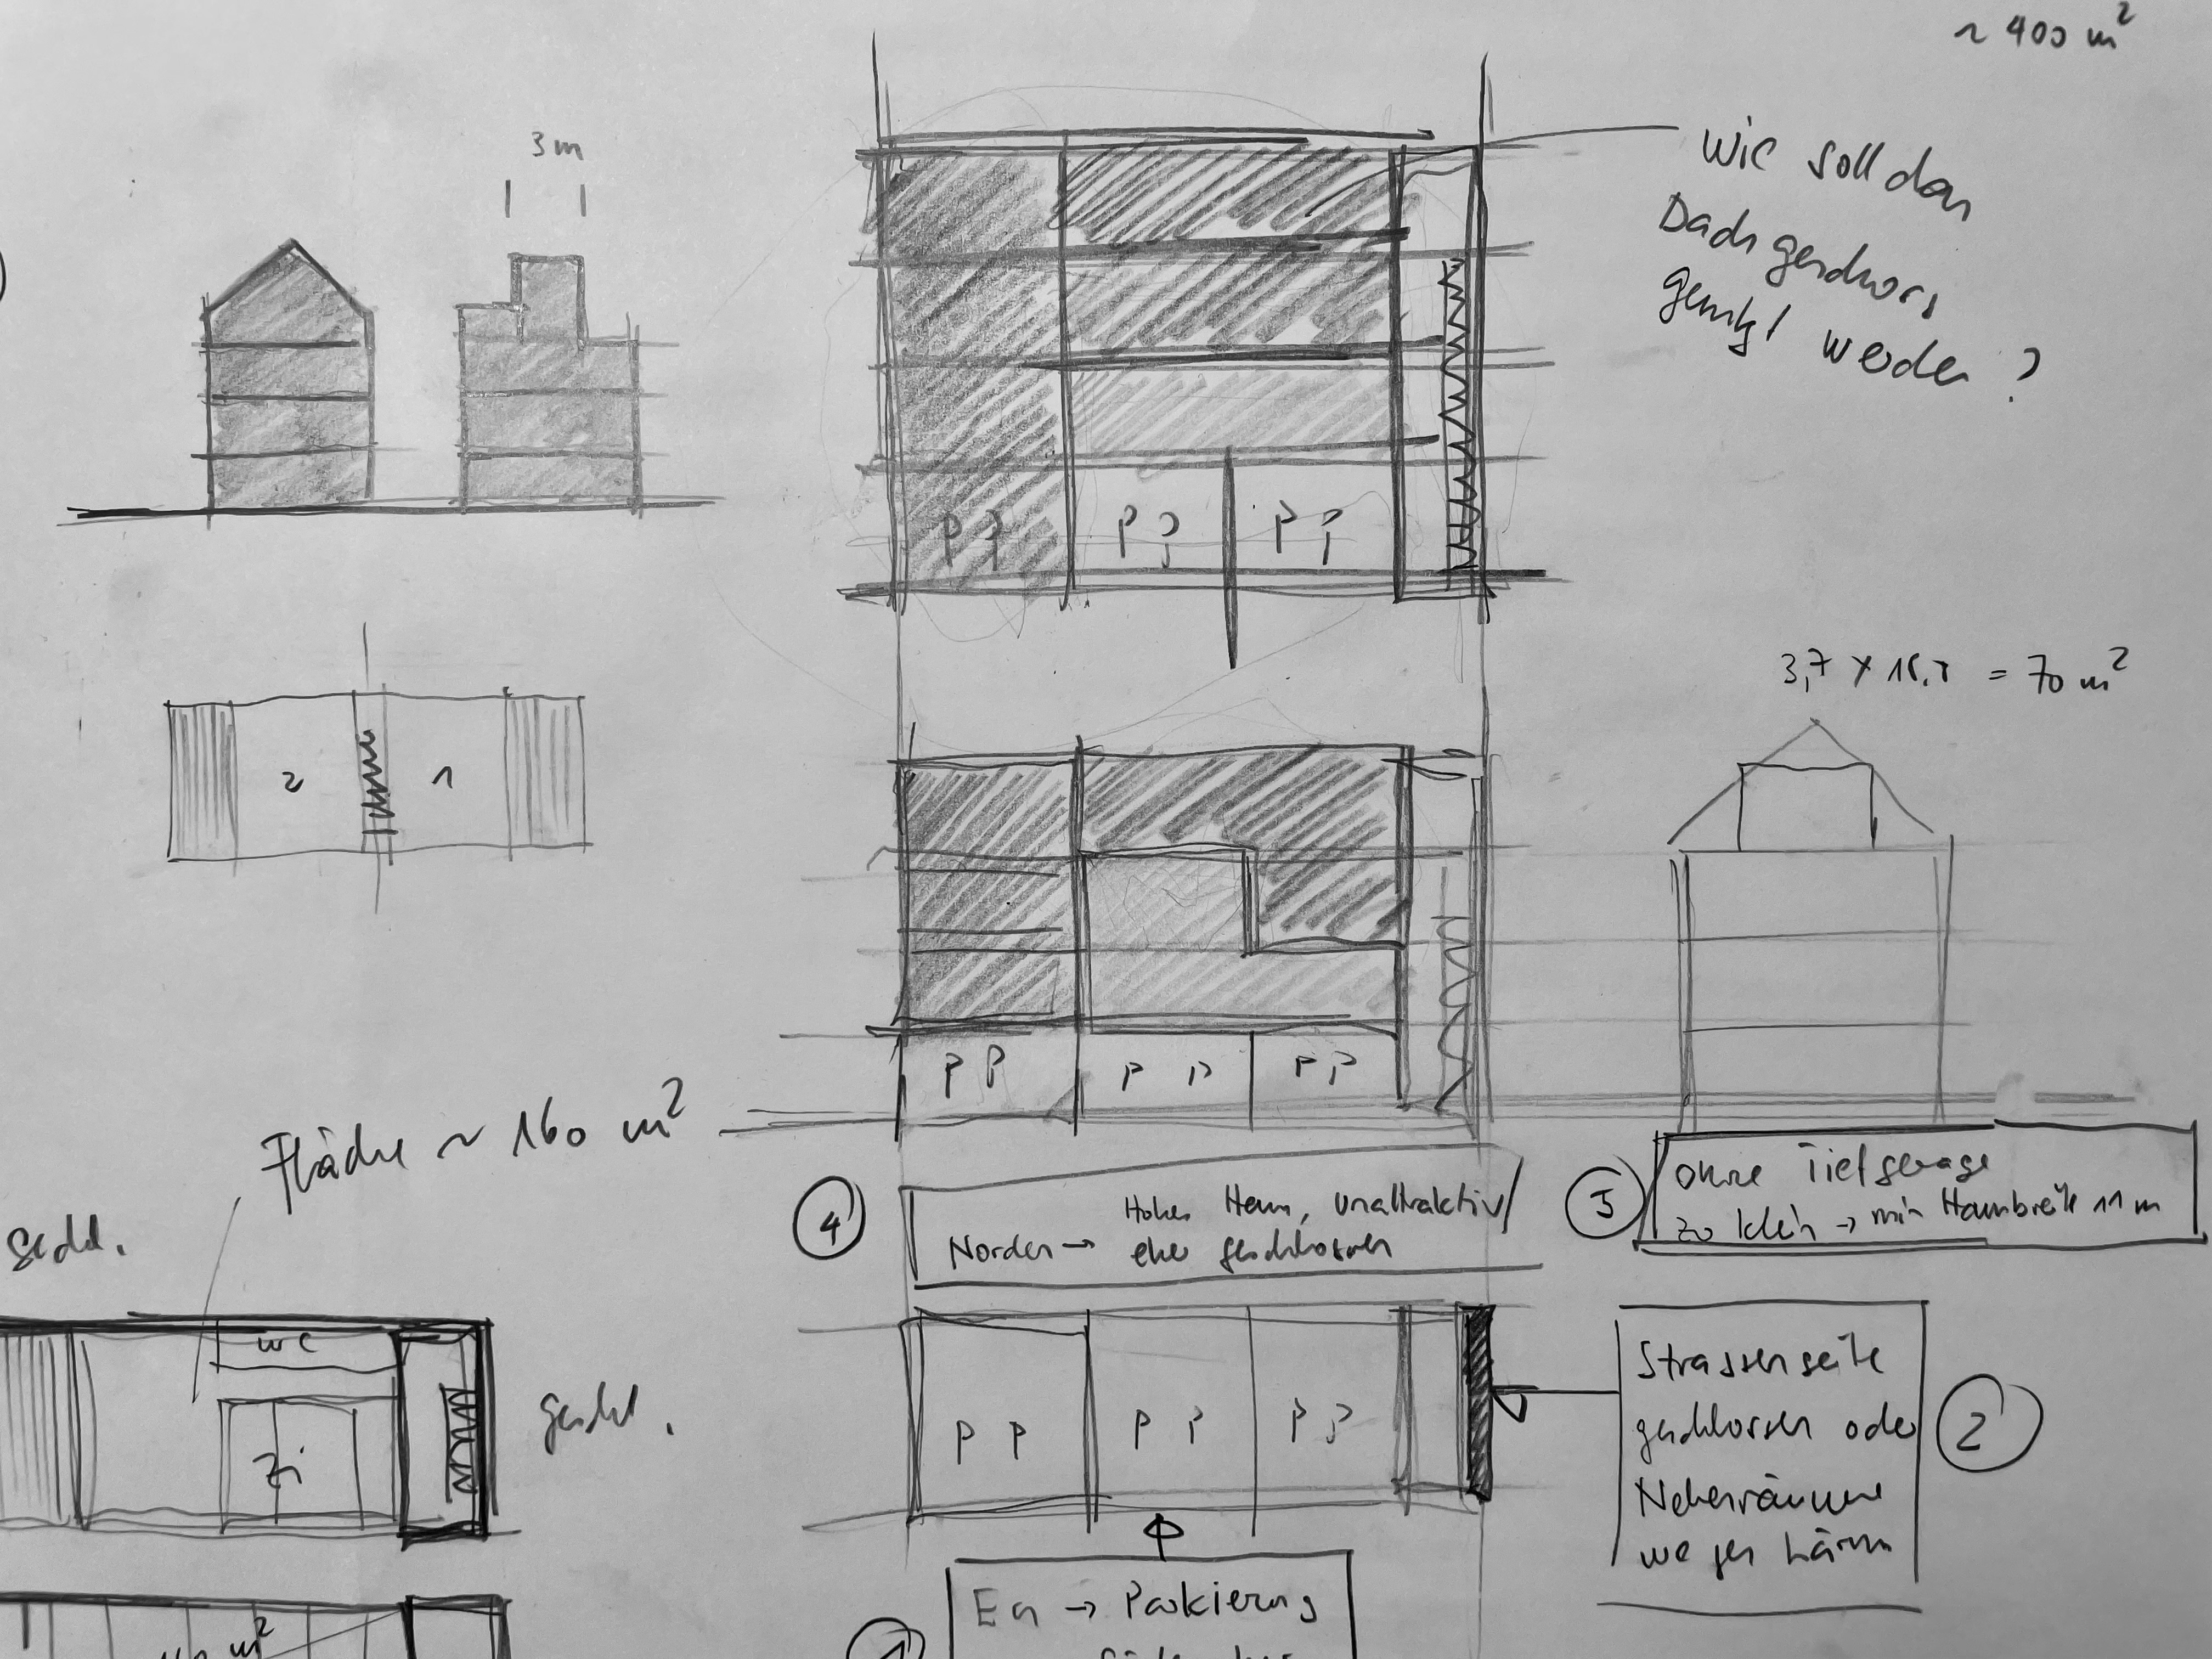 ~ 400 m²
3m
Wie soll das
Dachgeschoss
genutzt werden ?
P P
P P
P P
3,7 x = 70 m²
2
1
P P
P P
P P
Fläche ~ 160 m²
4
Hohes Haus, unattraktiv
Norden → eher geschlossen
5
ohne Tiefgarage
zu klein → min Hausbreite 11 m
geschl.
WC
Zi
geschl.
P P
P P
P P
Strassenseite
geschlossen oder
Nebenräume
wegen Lärm
2
EG → Parkierung
1
m²